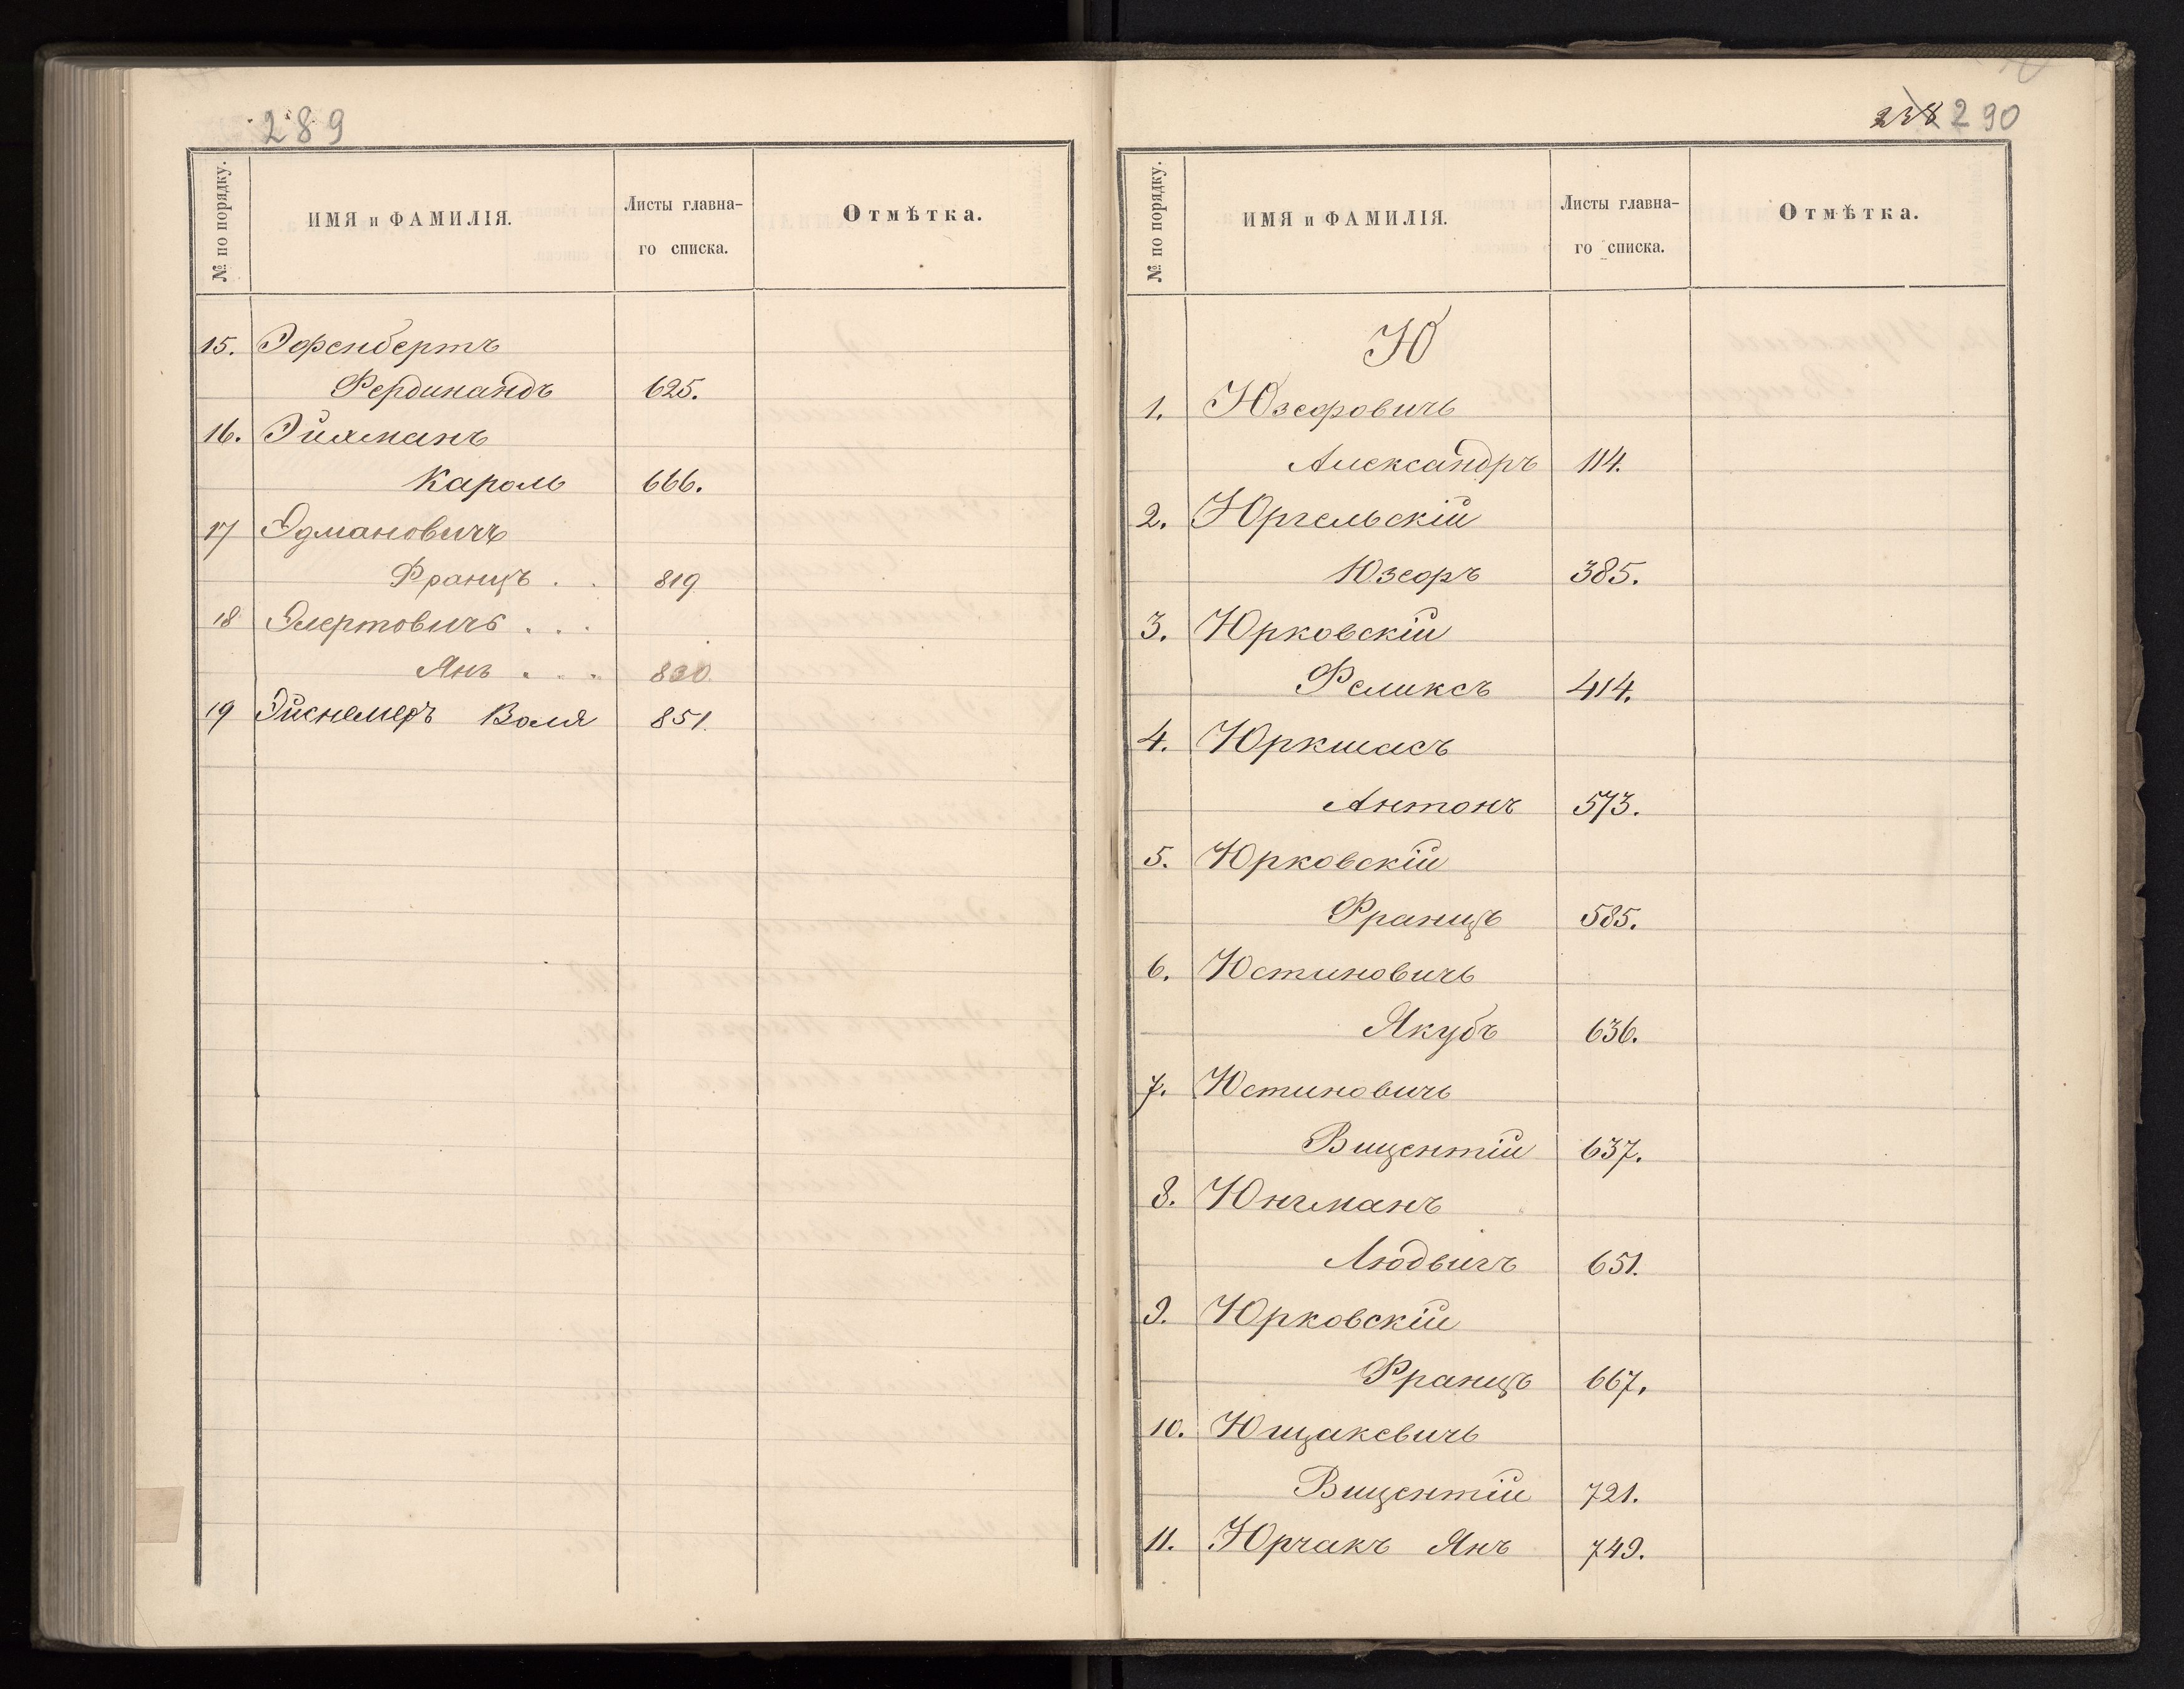 289
№ по порядку.
ИМЯ и ФАМИЛІЯ.
Листы главна-
го списка.
Отмѣтка.
15. Эфенбертъ
Фердинандъ 625.
16. Эйхманъ
Кароль 666.
17 Эдмановичъ
Францъ . . 819
18 Элертовичъ . . .
Янъ . . . 820.
19 Воля 851.
238 290
№ по порядку.
ИМЯ и ФАМИЛІЯ.
Листы главна-
го списка.
Отмѣтка.
Ю
1. Юзефовичь
Александръ 114.
2. Юргельскій
Юзефъ 385.
3. Юрковскій
Феликсъ 414.
4. Юркшасъ
Антонъ 573.
5. Юрковскій
Францъ 585.
6. Юстиновичь
Якубъ 636.
7. Юстиновичь
Вицентій 637.
8. Юнгманъ
Людвигъ 651.
9. Юрковскій
Францъ 667.
10. Ющакевичь
Вицентій 721.
11. Юрчакъ Янъ 749.